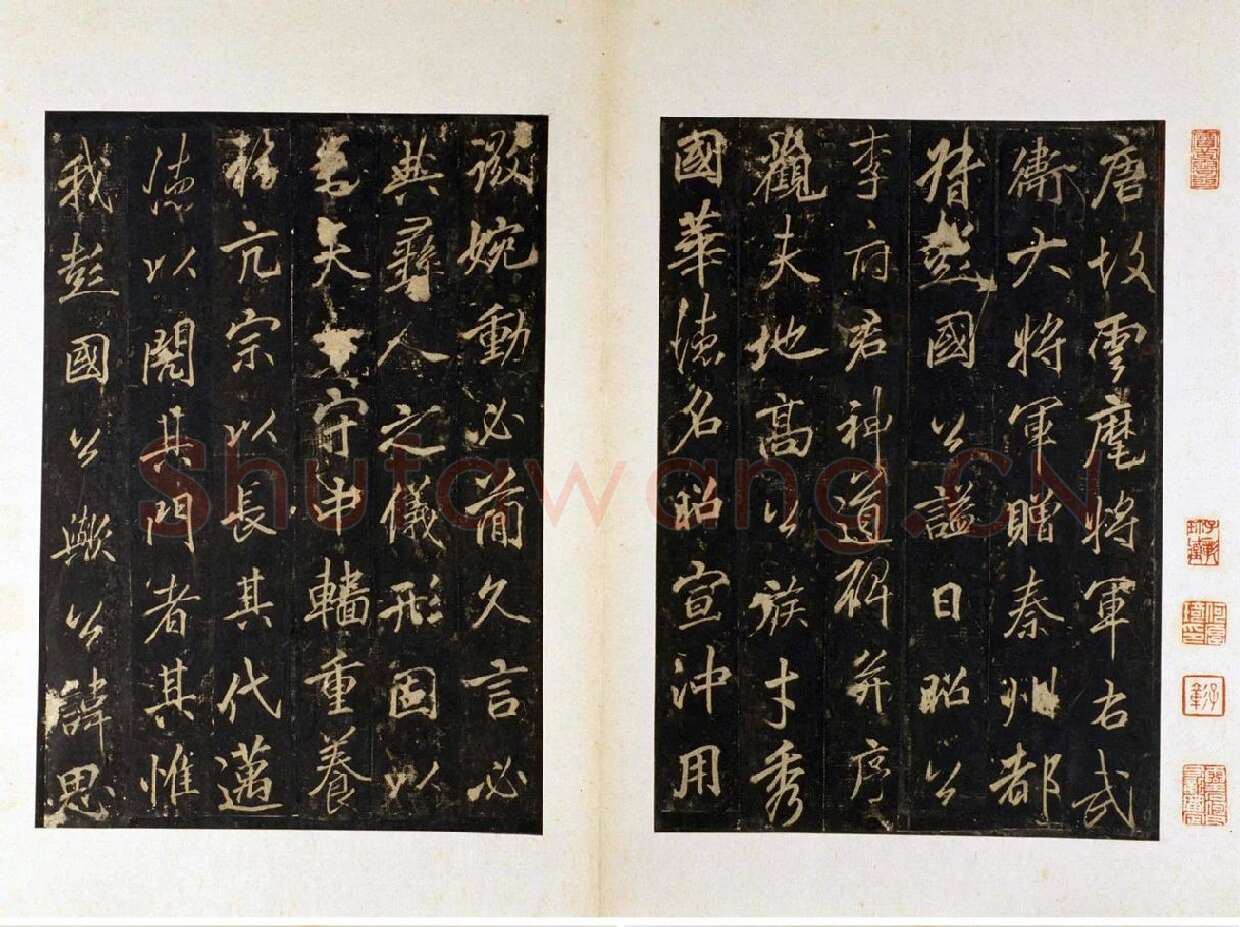 唐故雲麾將軍右武
衛大將軍贈秦州都
督彭國公謚曰昭公
李府君神道碑并序
觀夫地高公族才秀
國華德名昭宣沖用
微婉動必簡久言必
典彝人之儀形固以
守中轓重養
亢宗以長其代邁
德以閎其門者其惟
我彭國公歟公諱思
Shufawang.CN